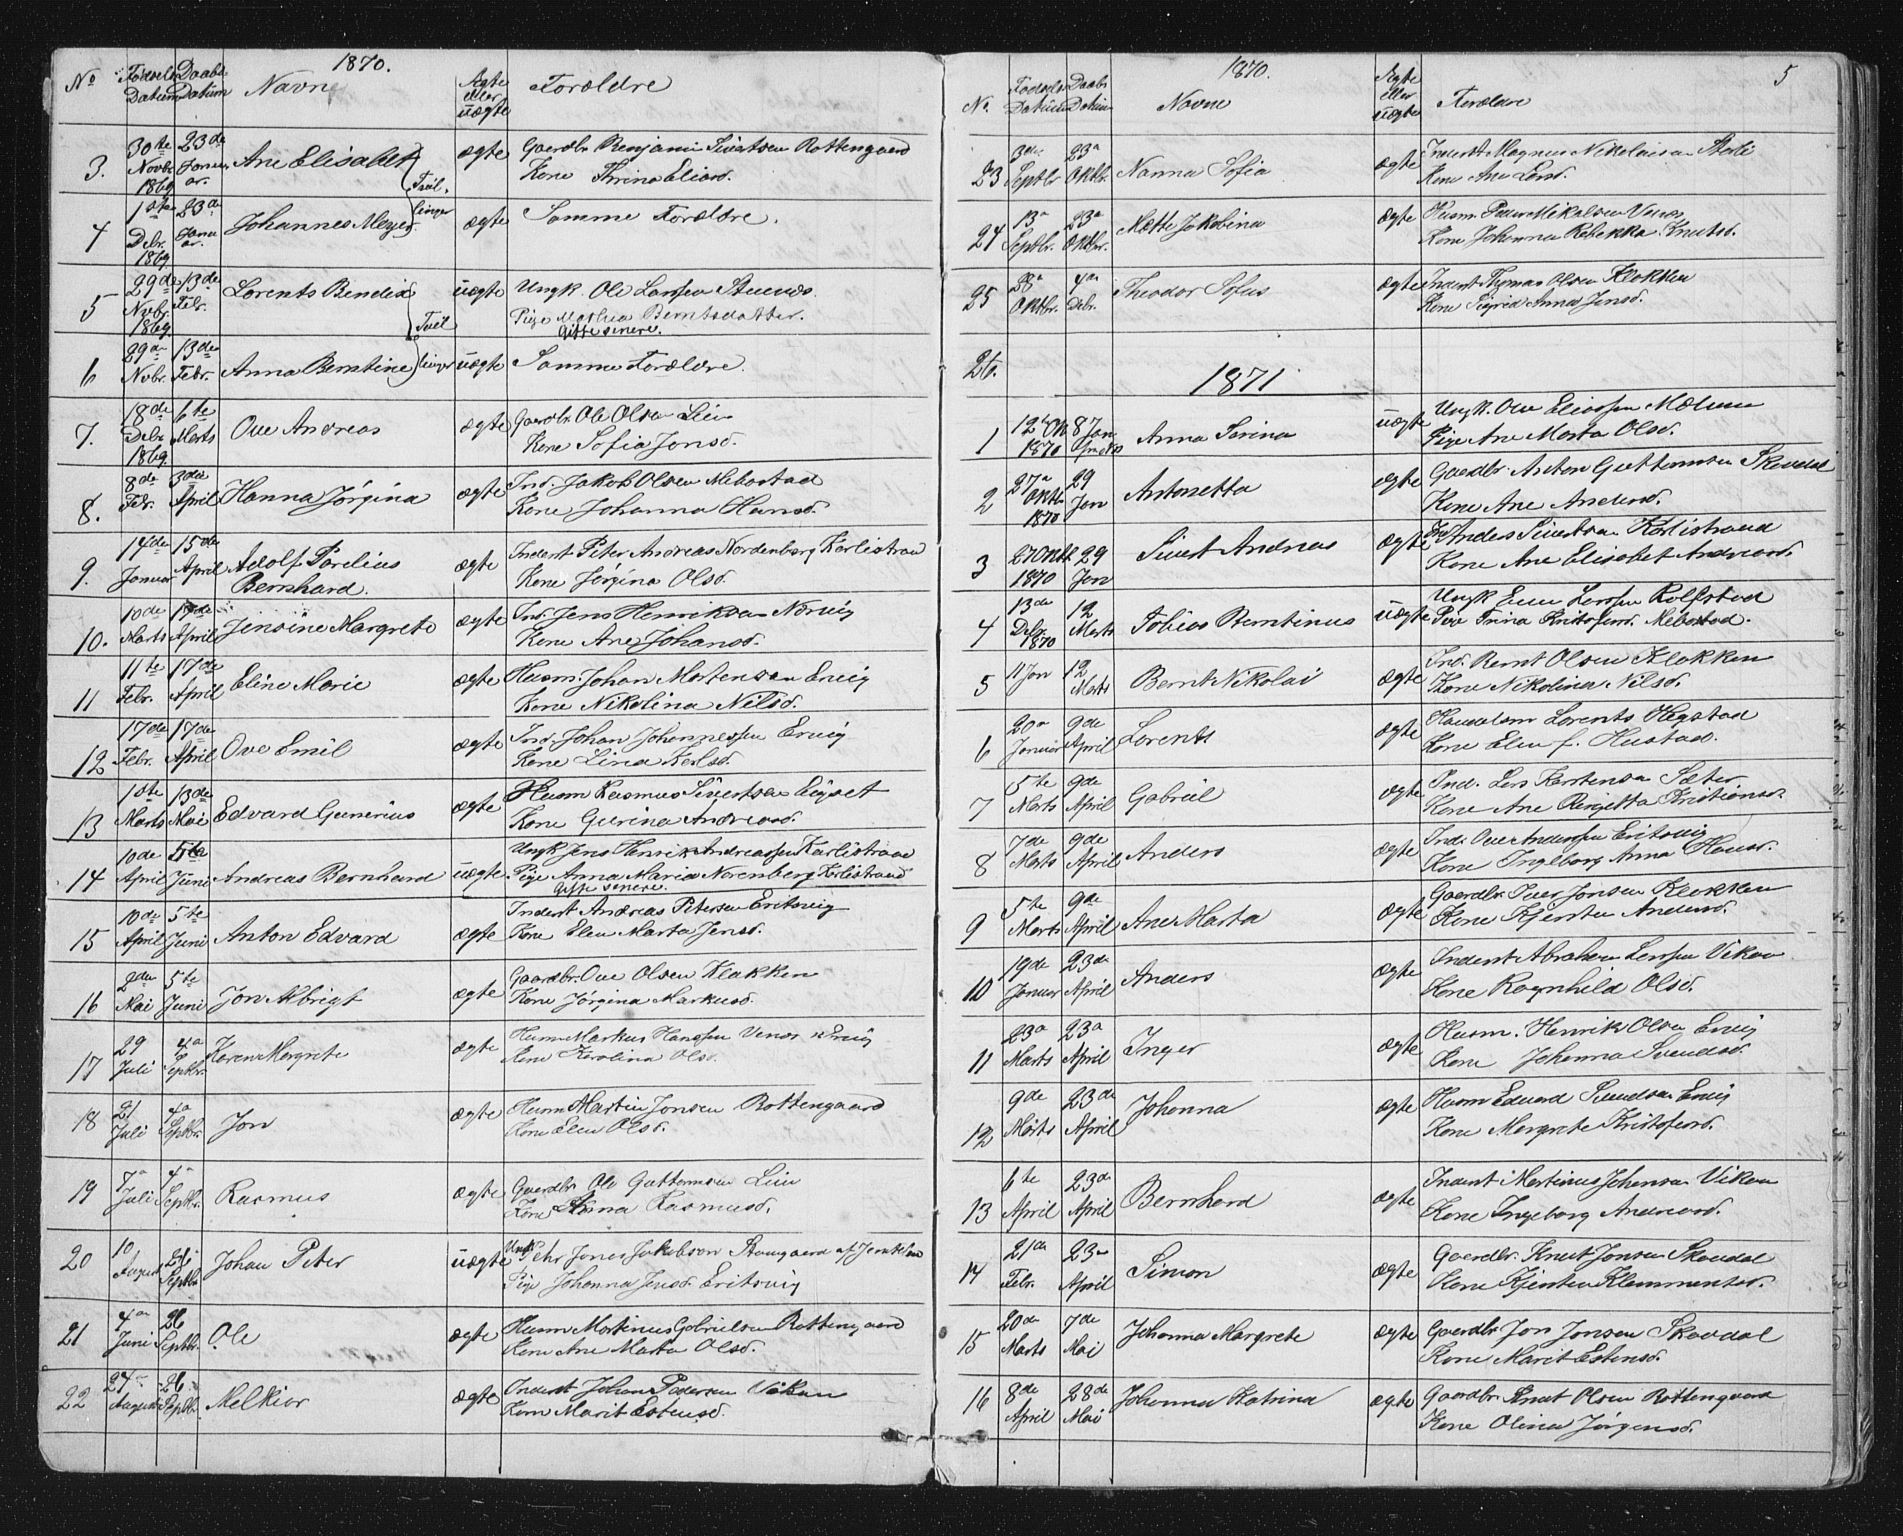 1870.
No Fødsels Datum Daabs Datum Navn Ægte eller uægte Forældre
3. 30te Novbr 1869 23de Januar. Ane Elisabet ægte Gaardbr Benjamin Sivertsen Rottengaard
Kone Thrina Eliasd.
Tvillinger
4 1ste Debr. 1869 23de Januar. Johannes Meyer ægte Samme Forældre.
5 29de Nvbr. 1869 13de Febr. Lorents Bendix uægte Ungk. Ole Larssen
Pige Mathea Berntsdatter.
Gifte senere.
Tvillinger
6 29de Nvbr. 13de Febr. Anna Berntine uægte Samme Forældre.
7. 18de Debr. 1869. 6te Marts Ove Andreas ægte Gaardbr. Ole Olsen Lien
Kone Sofia Jonsd.
8. 8de Febr. 3die April Hanna Jørgina ægte Ind. Jakob Olsen Mebostad
Kone Johanna Hansd.
9. 14de Januar 15de April Adolf Parelius Bernhard. ægte Inderst Peter Andreas Nordenberg Karlistran
Kone Jørgina Olsd.
10. 10de Marts 17de April Jensine Margrete ægte Ind. Jens Henriksen Nervig
Kone Ane Johansd.
11 11te Febr. 17de April Eline Marie ægte Husm. Johan Mortensen Ervig
Kone Nikolina Nilsd.
12 17de Febr. 17de April Ove Emil ægte Ind. Johan Johannessen Ervig
Kone Lina Karlsd.
13 1ste Marts 13de Mai Edvard Gunerius ægte Husm Rasmus Sivertsen
Kone Gurina Andreasd.
14 10de April 5te Juni Andreas Bernhard uægte. Ungk Jens Henrik Andreassen Karlistran
Pige Anna Maria Norenberg Karlistrand
Gifte senere.
15 10de April 5te Juni Anton Edvard ægte Inderst Andreas Petersen Eritsvig
Kone Elen Marta Jensd.
16 2den Mai 5te Juni Jon Albrigt ægte Gaardbr. Ove Olsen Klakken
Kone Jørgina Markusd.
17 29 Juli 4a Septbr. Karen Margrete ægte Husm Markus Hanssen Venes
Kone Karolina Olsd.
18 21 Juli 4a Septbr. Jon ægte Husm Martin Jonsen Rottengaard
Kone Elen Olsd.
19 7a Juli 4a Septbr. Rasmus ægte Gaardbr Ole Guttormsen Lien
Kone Anna Rasmusd.
20 10 August Septbr. Johan Peter uægte Ungk Pehr Jonas Jakobson
Pige Johanna Jensd. Eritsvig
21 4a Juni 26 Septbr. Ole ægte Husm Martinus Gabrielsen Rottengaard
Kone Ane Marta Olsd.
22 24 August 26 Septbr. Melkior ægte Inderst Johan Pedersen Viken
Kone Marit Estensd.
1870.
5
No. Fødsels Datum Daabs Datum Navne Ægte eller uægte Forældre
23 3de Septbr 23a Oktbr. Nanna Sofia ægte Inderst Magnus Nikolaisen
Kone Ane Larsd.
24 13a Septbr. 23a Oktbr. Mette Jakobina ægte Husm. Peder Mikalsen Venes
Kone Johanna Rebekka Knutsd.
25 Oktbr. 4de Debr. Theodor Sofus ægte Inderst Thomas Olsen Klokken
Kone Sigrid Anna Jensd.
26.
1871
1 12te Okt 1870 8 Jan Anna Serina uægte Ungk. Ove Eliassen Mælum
Pige Ane Marta Olsd.
2 27a Oktbr 1870 29 Jan Antonetta ægte Gaardbr. Anton Guttormsen Skavdal
Kone Ane Andersd.
3 27 Oktbr 1870 29 Jan Sivert Andreas ægte Ind Anders Sivertsen Karlistrand
Kone Ane Elisabet Andreasd.
4 13de Debr. 1870 12 Marts Tobias Berntinus uægte Ungk Even Larssen Rolfstad
Pige Trina Kristofersd. Mebostad.
5 11 Jan 12 Marts Bernt Nikolai ægte Ind. Bernt Olsen Klakken
Kone Nikolina Nilsd.
6 20a Januar 9de April Lorents ægte Handelsm Lorents Hegstad
Kone Elen f. Hustad.
7 5te Marts 9de April Gabriel ægte Ind. Lars Karstensen Sæter
Kone Ane Birgitta Kristiansd.
8 7de Marts 9de April Anders ægte Ind. Ove Anderssen Eritsvig
Kone Ingeborg Anna Hansd.
9 5te Marts 9de April Ane Marta ægte Gaardbr. Iver Jonsen Klakken
Kone Kjersten Andersd.
10 19de Januar 23de April Anders ægte Inderst Abraham Larssen Viken
Kone Ragnhild Olsd.
11 23a Marts 23a April Inger ægte Husm. Henrik Olsen Ervig
Kone Johanna Svendsd.
12 9de Marts 23de April Johanna ægte Husm Edvard Svendsen Ervig
Kone Margrete Kristofersd.
13 6te April 23de April Bernhard ægte Inderst Martinus Johansen Viken
Kone Ingeborg Andreasd.
14 21de Febr. 23de April Simon ægte Gaardbr. Knut Jonsen Skavdal
Kone Kjersten Klemmentsd.
15 20de Marts 7de Mai Johanna Margrete ægte Gaardbr. Jon Jonsen Skavdal
Kone Marit Estensd.
16 8de April 28de Mai Johanna Katrina ægte Gaardbr. Knut Olsen Rottengaard
Kone Olina Jørgensd.